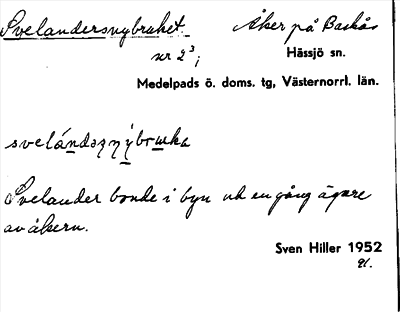 Svelandersnybruket. Åker på Baskås
nr 2³; Hässjö sn.
Medelpads ö. doms. tg, Västernorrl. län.
Svelander bonde i byn och en gång ägare
av åkern.
Sven Hiller 1952